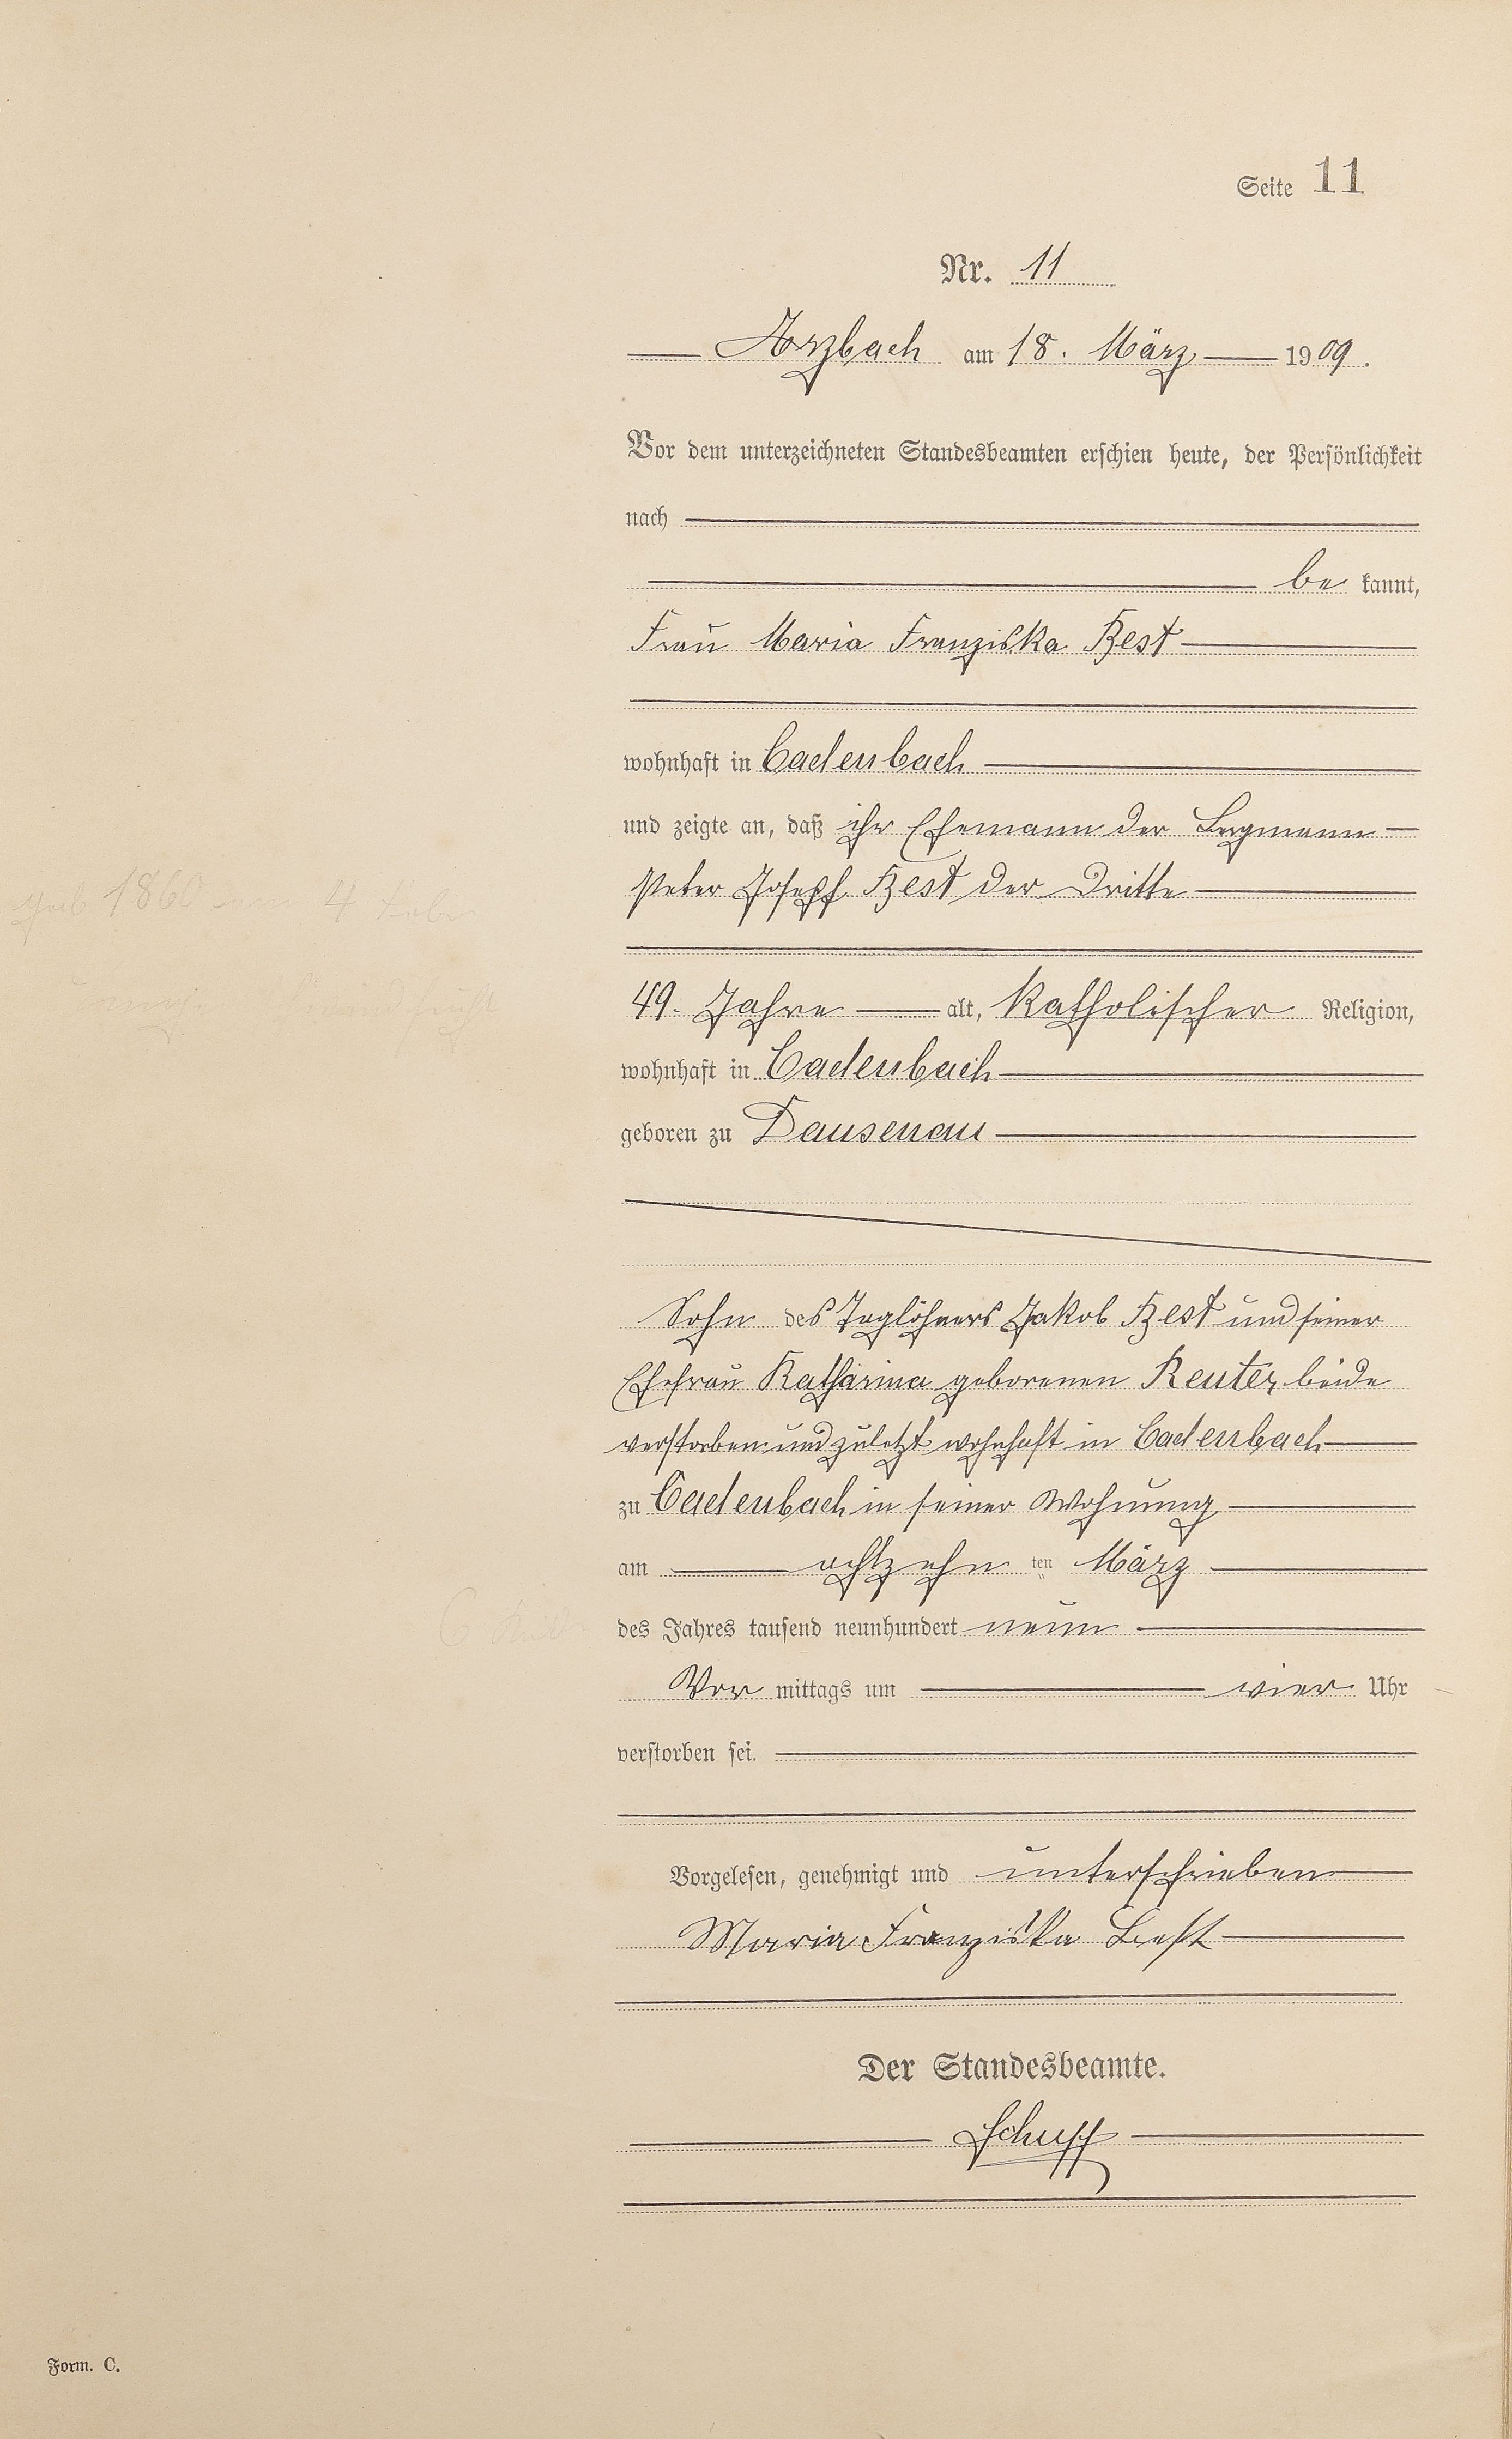 Seite 11
Nr. 11
Arzbach am 18. März 1909.
Vor dem unterzeichneten Standesbeamten erschien heute, der Persönlichkeit
nach
be kannt,
Frau Maria Franziska Best
wohnhaft in Cadenbach
und zeigte an, daß ihr Ehemann der Bergmann
Peter Joseph Best der Dritte
geb 1860 4 Febr
49. Jahre alt, katholischer Religion,
wohnhaft in Cadenbach
geboren zu Dausenau
Sohn des Taglöhners Jakob Best und seiner
Ehefrau Katharina geborenen Reuter, beide
verstorben und zuletzt wohnhaft in Cadenbach
zu Cadenbach in seiner Wohnung
am achtzehn ten März
des Jahres tausend neunhundert neun
6
Vor mittags um vier Uhr
verstorben sei.
Vorgelesen, genehmigt und unterschrieben
Maria Franziska Best
Der Standesbeamte.
Schuff
Form. C.